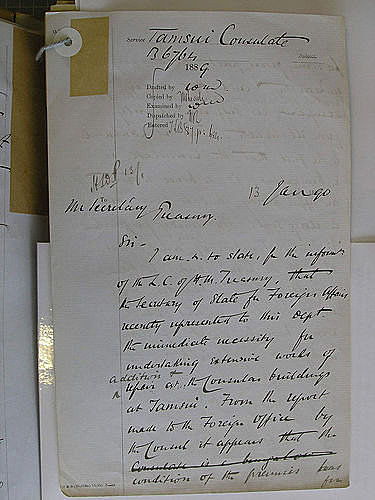 Service
Tamsui Consulate
B 6764
1889
Drafted by
Copied by
Examined by
Dispatched by
Entered
13 Jan 90
Mr Secretary Treasury.
Sir -
I am &. to state, for the inform'n
of the L. C. of H. M. Treasury, that
the Secretary of State for Foreign Affairs
recently represented to this Dept
the immediate necessity for
undertaking extensive works of
addition &
repair at the Consular buildings
at Tamsui. From the report
made to the Foreign Office by
the Consul it appears that the
Consulate is a bungalow
condition of the premises was